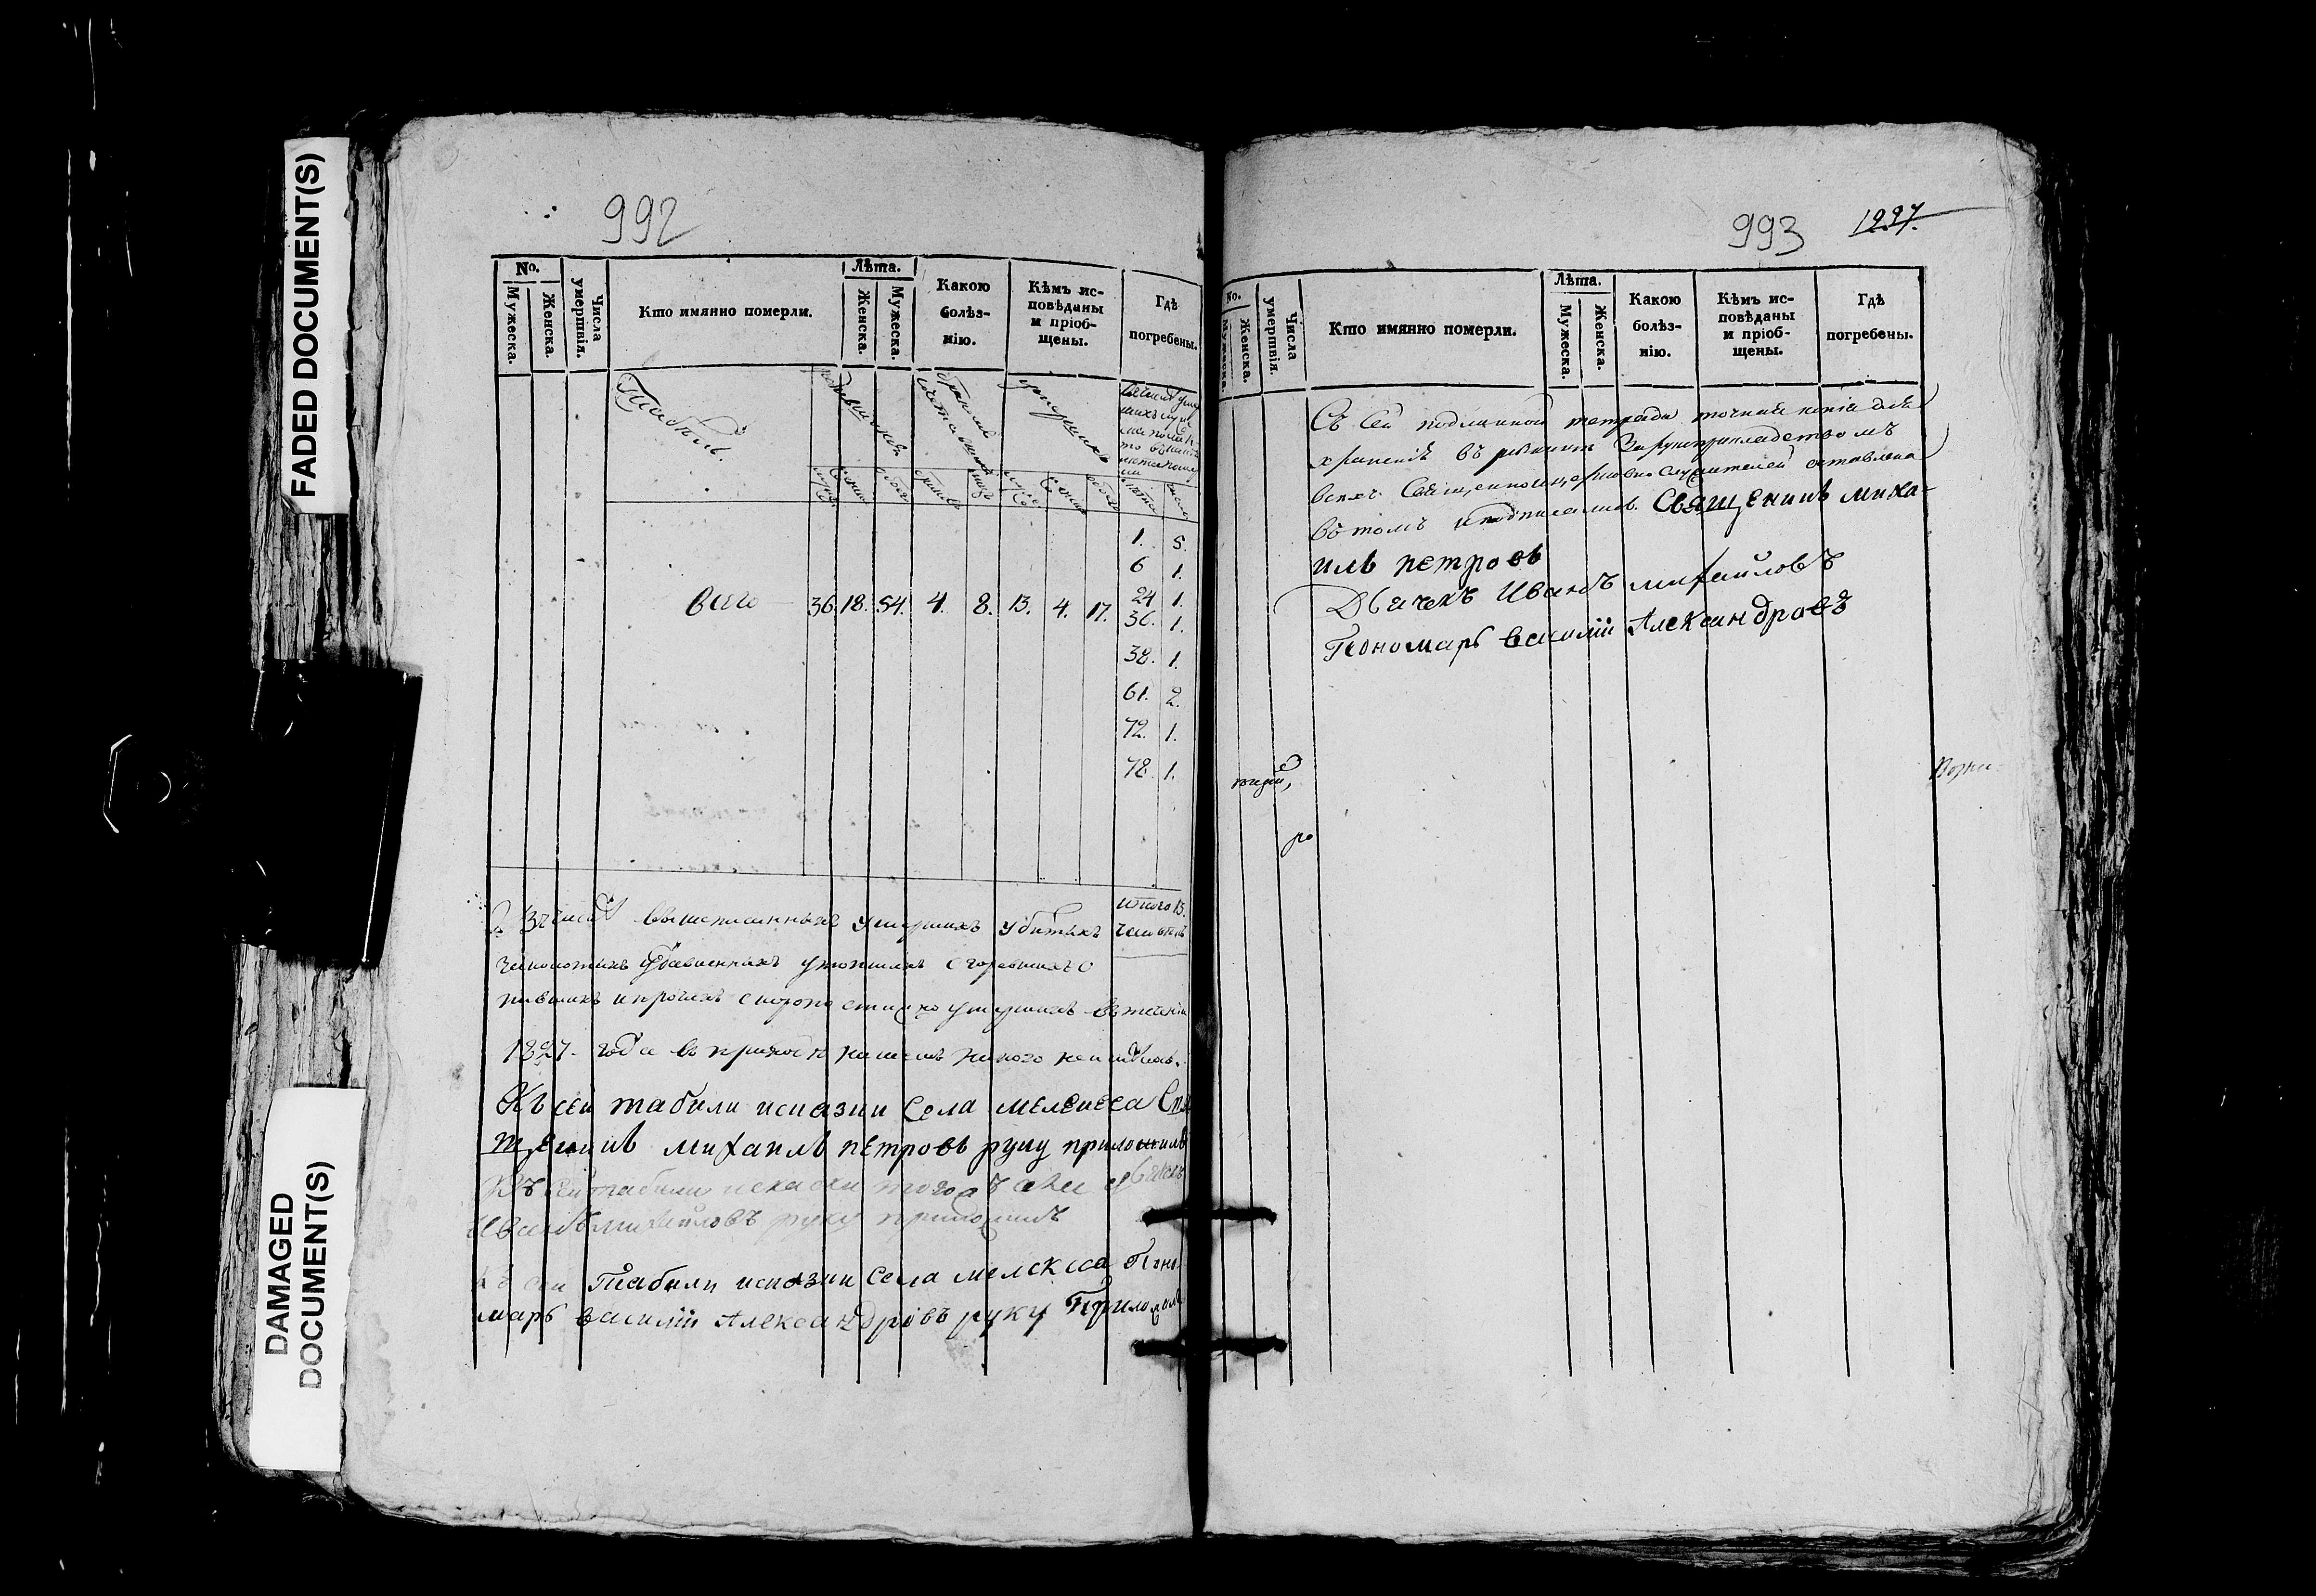 FADED DOCUMENT(S)
DAMAGED
DOCUMENT(S)
992
No.
Мужеска.
Женска.
Числа
умертвія.
Кто имянно померли.
Лѣта.
Женска.
Мужеска.
Какою
болѣз-
нію.
Кѣмъ ис-
повѣданы
и пріоб-
щены.
Гдѣ
погребены.
Табель.
1. 5.
6 1.
всего 36. 18. 54. 4. 8. 13. 4. 17. 24 1.
36. 1.
38. 1.
61. 2.
72. 1.
78. 1.
итого 13.
вышеписанныхъ умершихъ убитыхъ
утопшихъ сгоревшихъ о
пившихся и прочихъ скоропостижно умершихъ въ теченіи
1827. года въ приходѣ нашемъ никого не имѣлось.
Къ сеи табили исказки села мелекеса Свя
щеникъ михаилъ петровъ руку приложилъ
Къ сей табили исказки тогожъ села дьячекъ
Иванъ михайловъ руку приложилъ
Къ сеи табили исказки села мелекеса Поно
марь василии Александровъ руку Приложилъ
993 1227.
No.
Мужеска.
Женска.
Числа
умертвія.
Кто имянно померли.
Лѣта.
Мужеска.
Женска.
Какою
болѣз-
нію.
Кѣмъ ис-
повѣданы
и пріоб-
щены.
Гдѣ
погребены.
Съ сей подлинной тетради точная копія для
храненія въ за рукоприкладствомъ
всехъ Священноцерковно служителей оставлена
въ томъ и подписались. Священикъ миха-
илъ петровъ
Дьячекъ Иванъ михайловъ
Пономарь василии Александровъ
ро